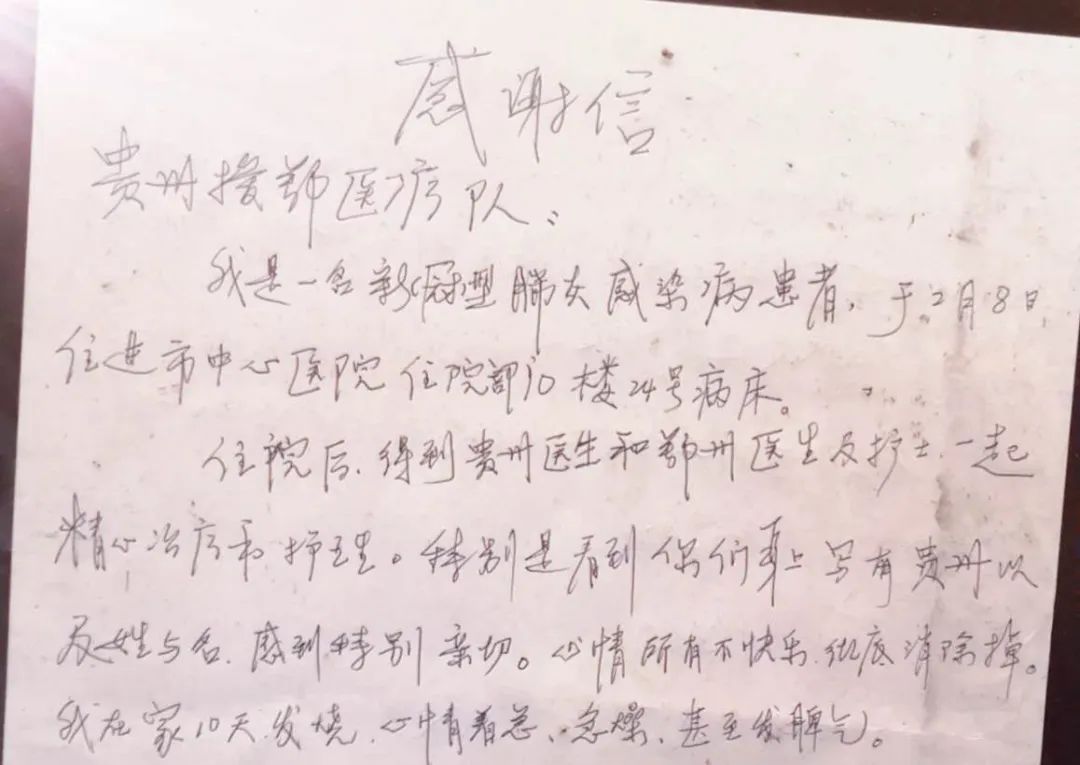 感谢信
贵州援鄂医疗队：
我是一名新冠型肺炎感染病患者，于2月8日
住进市中心医院住院部10楼24号病床。
住院后，得到贵州医生和鄂州医生及护士，一起
精心治疗和护理。特别是看到你们身上写有贵州以
及姓与名，感到特别亲切。心情所有不快乐，彻底消除掉。
我在家10天，发烧，心情着急、急燥，甚至发脾气。